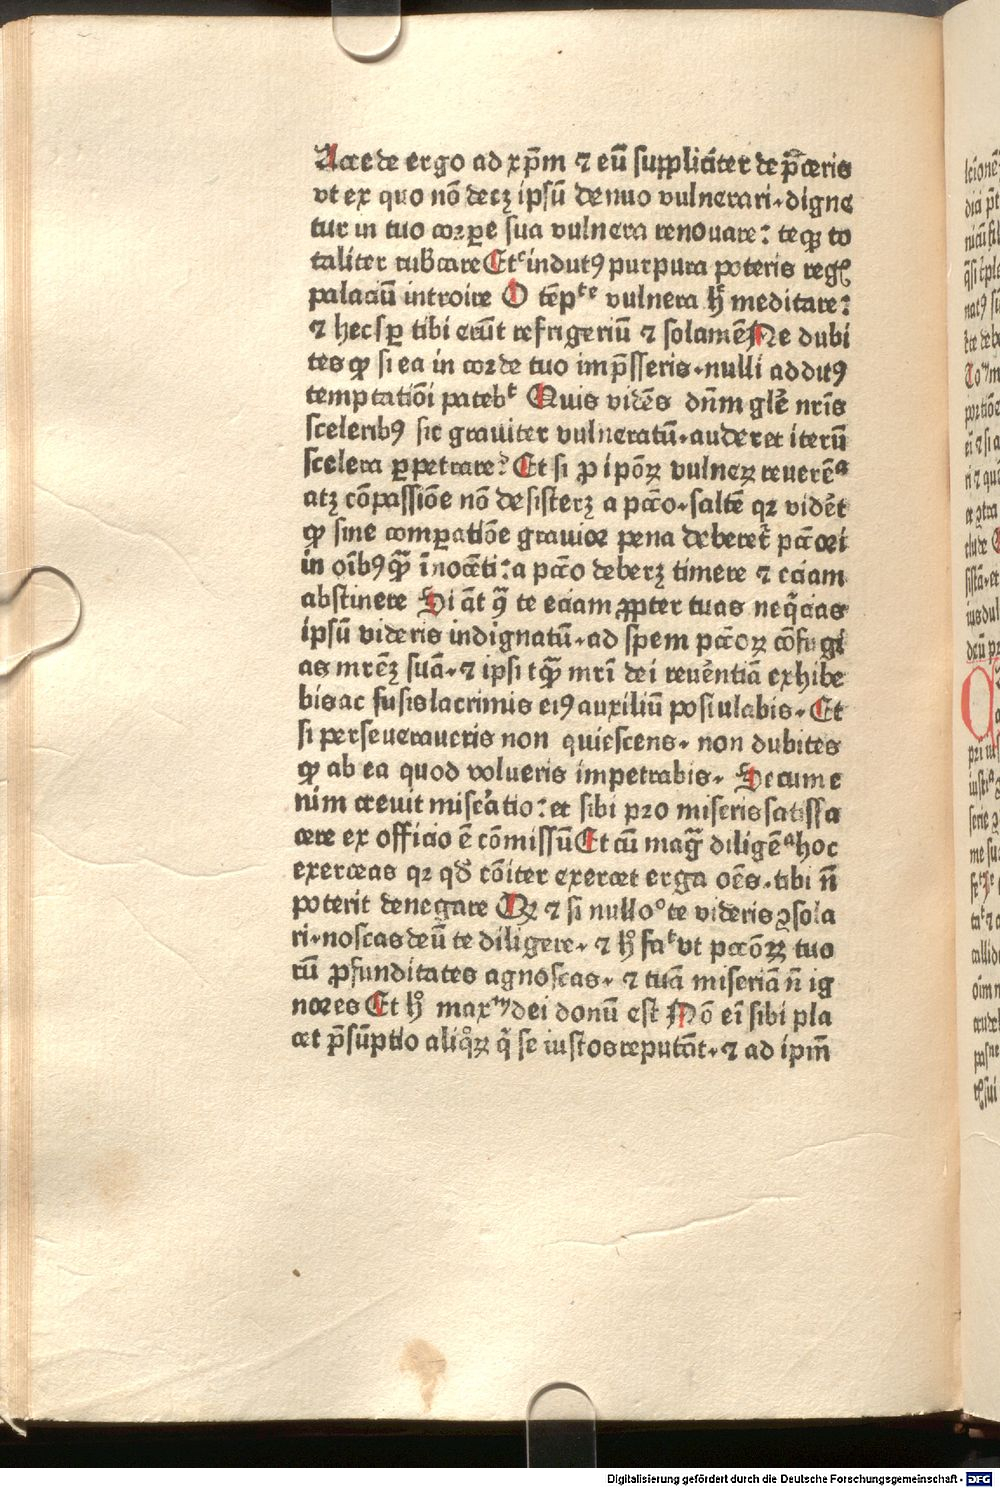 Accede ergo ad xp̄m ⁊ eū suppliciter dep̄ceris
vt ex quo nō decꝫ ipsū denuo vulnerari·digne
tur in tuo corꝑe sua vulnera renouare: teqꝫ to
taliter rubcare Etᶜ indutꝰ purpura poteris reg
palaciū introire O tēpᵗᵉ vulnera h̄ meditare:
⁊ hec sꝑ tibi erūt refrigeriū ⁊ solamē Ne dubi
tes ꝙ si ea in corde tuo imp̄sseris·nulli additꝰ
temptatiōi patebᵗ Quis vidēs dn̄m glē nr̄is
sceleribꝰ sic grauiter vulneratū·auderet iterū
scelera ꝑpetrare? Et si ꝓ ipōꝝ vulneꝝ reuerēᵃ
atꝫ cōpassiōe nō desisterꝫ a pcc̄o·saltē qꝛ vidēt
ꝙ sine comparatiōe grauior pena deberet̄ pcc̄ori
in oībꝰ ꝙ̄ īnocēti: a pcc̄o deberꝫ timere ⁊ eciam
abstinere Si āt q̄ te eciam ꝓpter tuas neq̄cias
ipsū videris indignatū·ad spem pcc̄oꝝ cōfugi
as mr̄eꝫ suā·⁊ ipsi tꝙ̄ mr̄i dei reuēntiā exhibe
bis ac fusis lacrimis eiꝰ auxiliū postulabis· Et
si perseueraueris non quiescens· non dubites
ꝙ ab ea quod volueris impetrabis· Secum e
nim creuit misēatio: et sibi pro miseris satisfa
cere ex officio ē cōmissū Et cū maḡ diligēᵃ hoc
exerceas qꝛ qd̄ cōiter exercet erga oēs·tibi n̄
poterit denegare Qꝫ ⁊ si nulloᵒ te videris ꝯsola
ri·noscas deū te diligere· ⁊ h̊ faᵗ vt pcc̄oꝝ tuo
rū ꝓfunditates agnoscas· ⁊ tuā miseriā n̄ ig
nores Et h̊ maxᵐ dei donū est Nō eī sibi pla
cet p̄sūptio aliq̊ꝝ q̇ se iustos reputāt·⁊ ad ipm̄
Digitalisierung gefördert durch die Deutsche Forschungsgemeinschaft - DFG